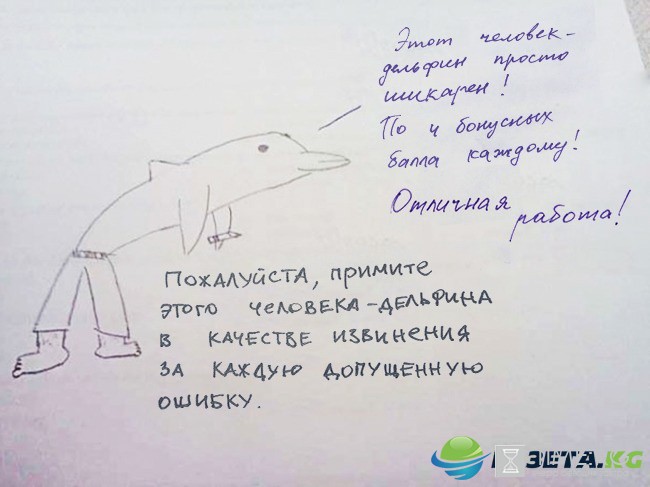 Этот человек-
дельфин просто
шикарен!
По 4 бонусных
балла каждому!
Отличная
работа!
ПОЖАЛУЙСТА, ПРИМИТЕ
ЭТОГО ЧЕЛОВЕКА-ДЕЛЬФИНА
В КАЧЕСТВЕ ИЗВИНЕНИЯ
ЗА КАЖДУЮ ДОПУЩЕННУЮ
ОШИБКУ.
ЗЕТА.KG